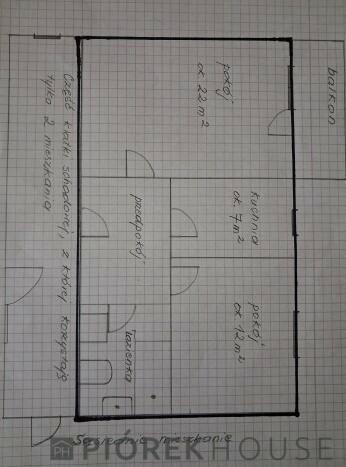 balkon
pokój
ok 22 m²
kuchnia
ok 7 m²
pokój
ok 12 m²
przedpokój
łazienka
Część klatki schodowej, z której korzystają
tylko 2 mieszkania
Sąsiednie mieszkanie
PH PIÓREKHOUSE